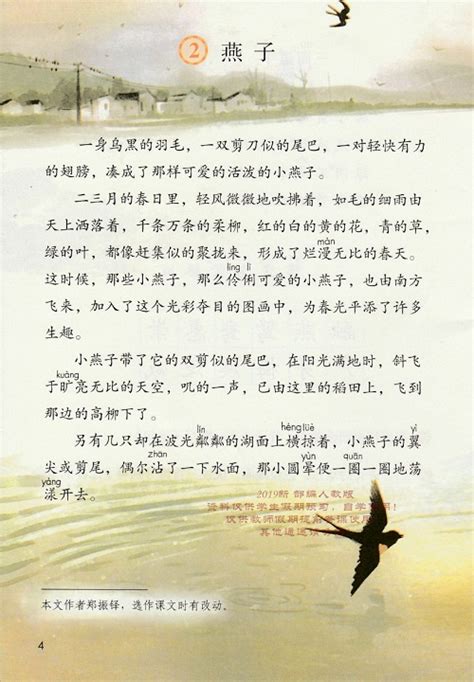 2 燕子
一身乌黑的羽毛，一双剪刀似的尾巴，一对轻快有力
的翅膀，凑成了那样可爱的活泼的小燕子。
二三月的春日里，轻风微微地吹拂着，如毛的细雨由
天上洒落着，千条万条的柔柳，红的白的黄的花，青的草，
绿的叶，都像赶集似的聚拢来，形成了烂漫无比的春天。
màn
líng lì
这时候，那些小燕子，那么伶俐可爱的小燕子，也由南方
飞来，加入了这个光彩夺目的图画中，为春光平添了许多
生趣。
小燕子带了它的双剪似的尾巴，在阳光满地时，斜飞
kuàng
于旷亮无比的天空，叽的一声，已由这里的稻田上，飞到
那边的高柳下了。
lín héng lüè yì
另有几只却在波光粼粼的湖面上横掠着，小燕子的翼
zhān yùn quān
尖或剪尾，偶尔沾了一下水面，那小圆晕便一圈一圈地荡
yàng
漾开去。
2019新 部编人教版
资料仅供学生假期预习，自学使用！
仅供教师假期提前备课使用
本文作者郑振铎，选作课文时有改动。
4